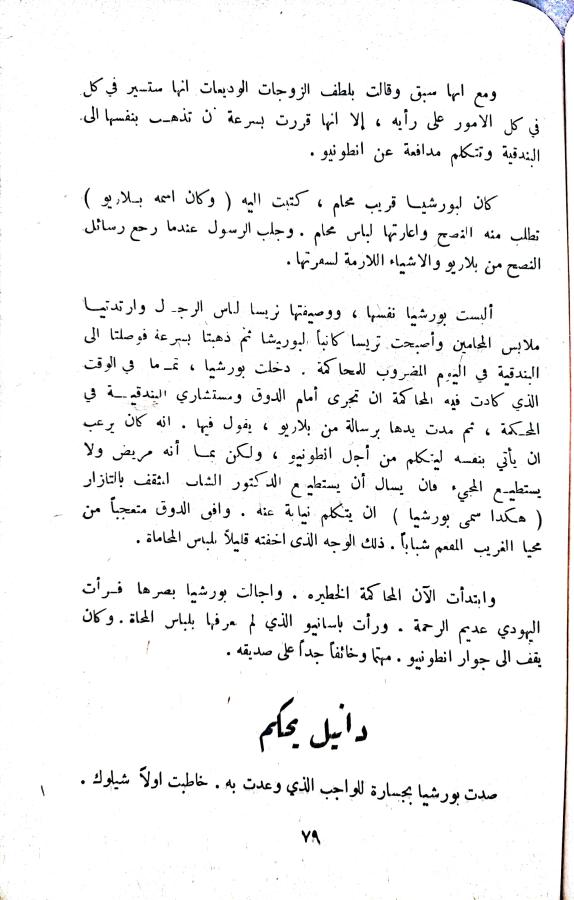 ومع انها سبق وقالت بلطف الزوجات الوديعات انها ستسير في كل
في كل الامور على رأيه ، إلا انها قررت بسرعة ن تذهب بنفسها الى
البندقية وتتكلم مدافعة عن انطونيو .
كان لبورشيا قريب محام ، كتبت اليه ( وكان اسمه بلاريو )
تطلب منه النصح واعارتها لباس محام . وجلب الرسول عندما رجع رسائل
النصح من بلاريو والاشياء اللازمة لسفرتها .
ألبست بورشيا نفسها ، ووصيفتها نريسا لباس الرجل وارتدتيا
ملابس المحامين وأصبحت نريسا كاتباً لبوريشا ثم ذهبتا بسرعة فوصلتا الى
البندقية في اليوم المضروب للمحاكمة . دخلت بورشيا ، تمـاما في الوقت
الذي كادت فيه المحاكمة ان تجرى أمام الدوق ومستشاري البندقية في
المحكمة ، ثم مدت يدها برسالة من بلاريو ، يقول فيها . انه كان يرغب
ان يأتي بنفسه ليتكلم من أجل انطونيو ، ولكن بما أنه مريض ولا
يستطيع المجيء فان يسال أن يستطيع الدكتور الشاب المثقف بالتازار
( هكذا سمى بورشيا ) ان يتكلم نيابة عنه . وافى الدوق متعجباً من
محيا الغريب المفعم شباباً . ذلك الوجه الذى اخفته قليلاً بلباس المحاماة .
وابتدأت الآن المحاكمة الخطيره . واجالت بورشيا بصرها فرأت
اليهودي عديم الرحمة . ورأت باسانيو الذي لم يعرفها بلباس المحاة . وكان
يقف الى جوار انطونيو . مهتما وخائفاً جداً على صديقه .
دانيل يحكم
صدت بورشيا بجسارة للواجب الذي وعدت به . خاطبت اولاً شيلوك .
٧٩